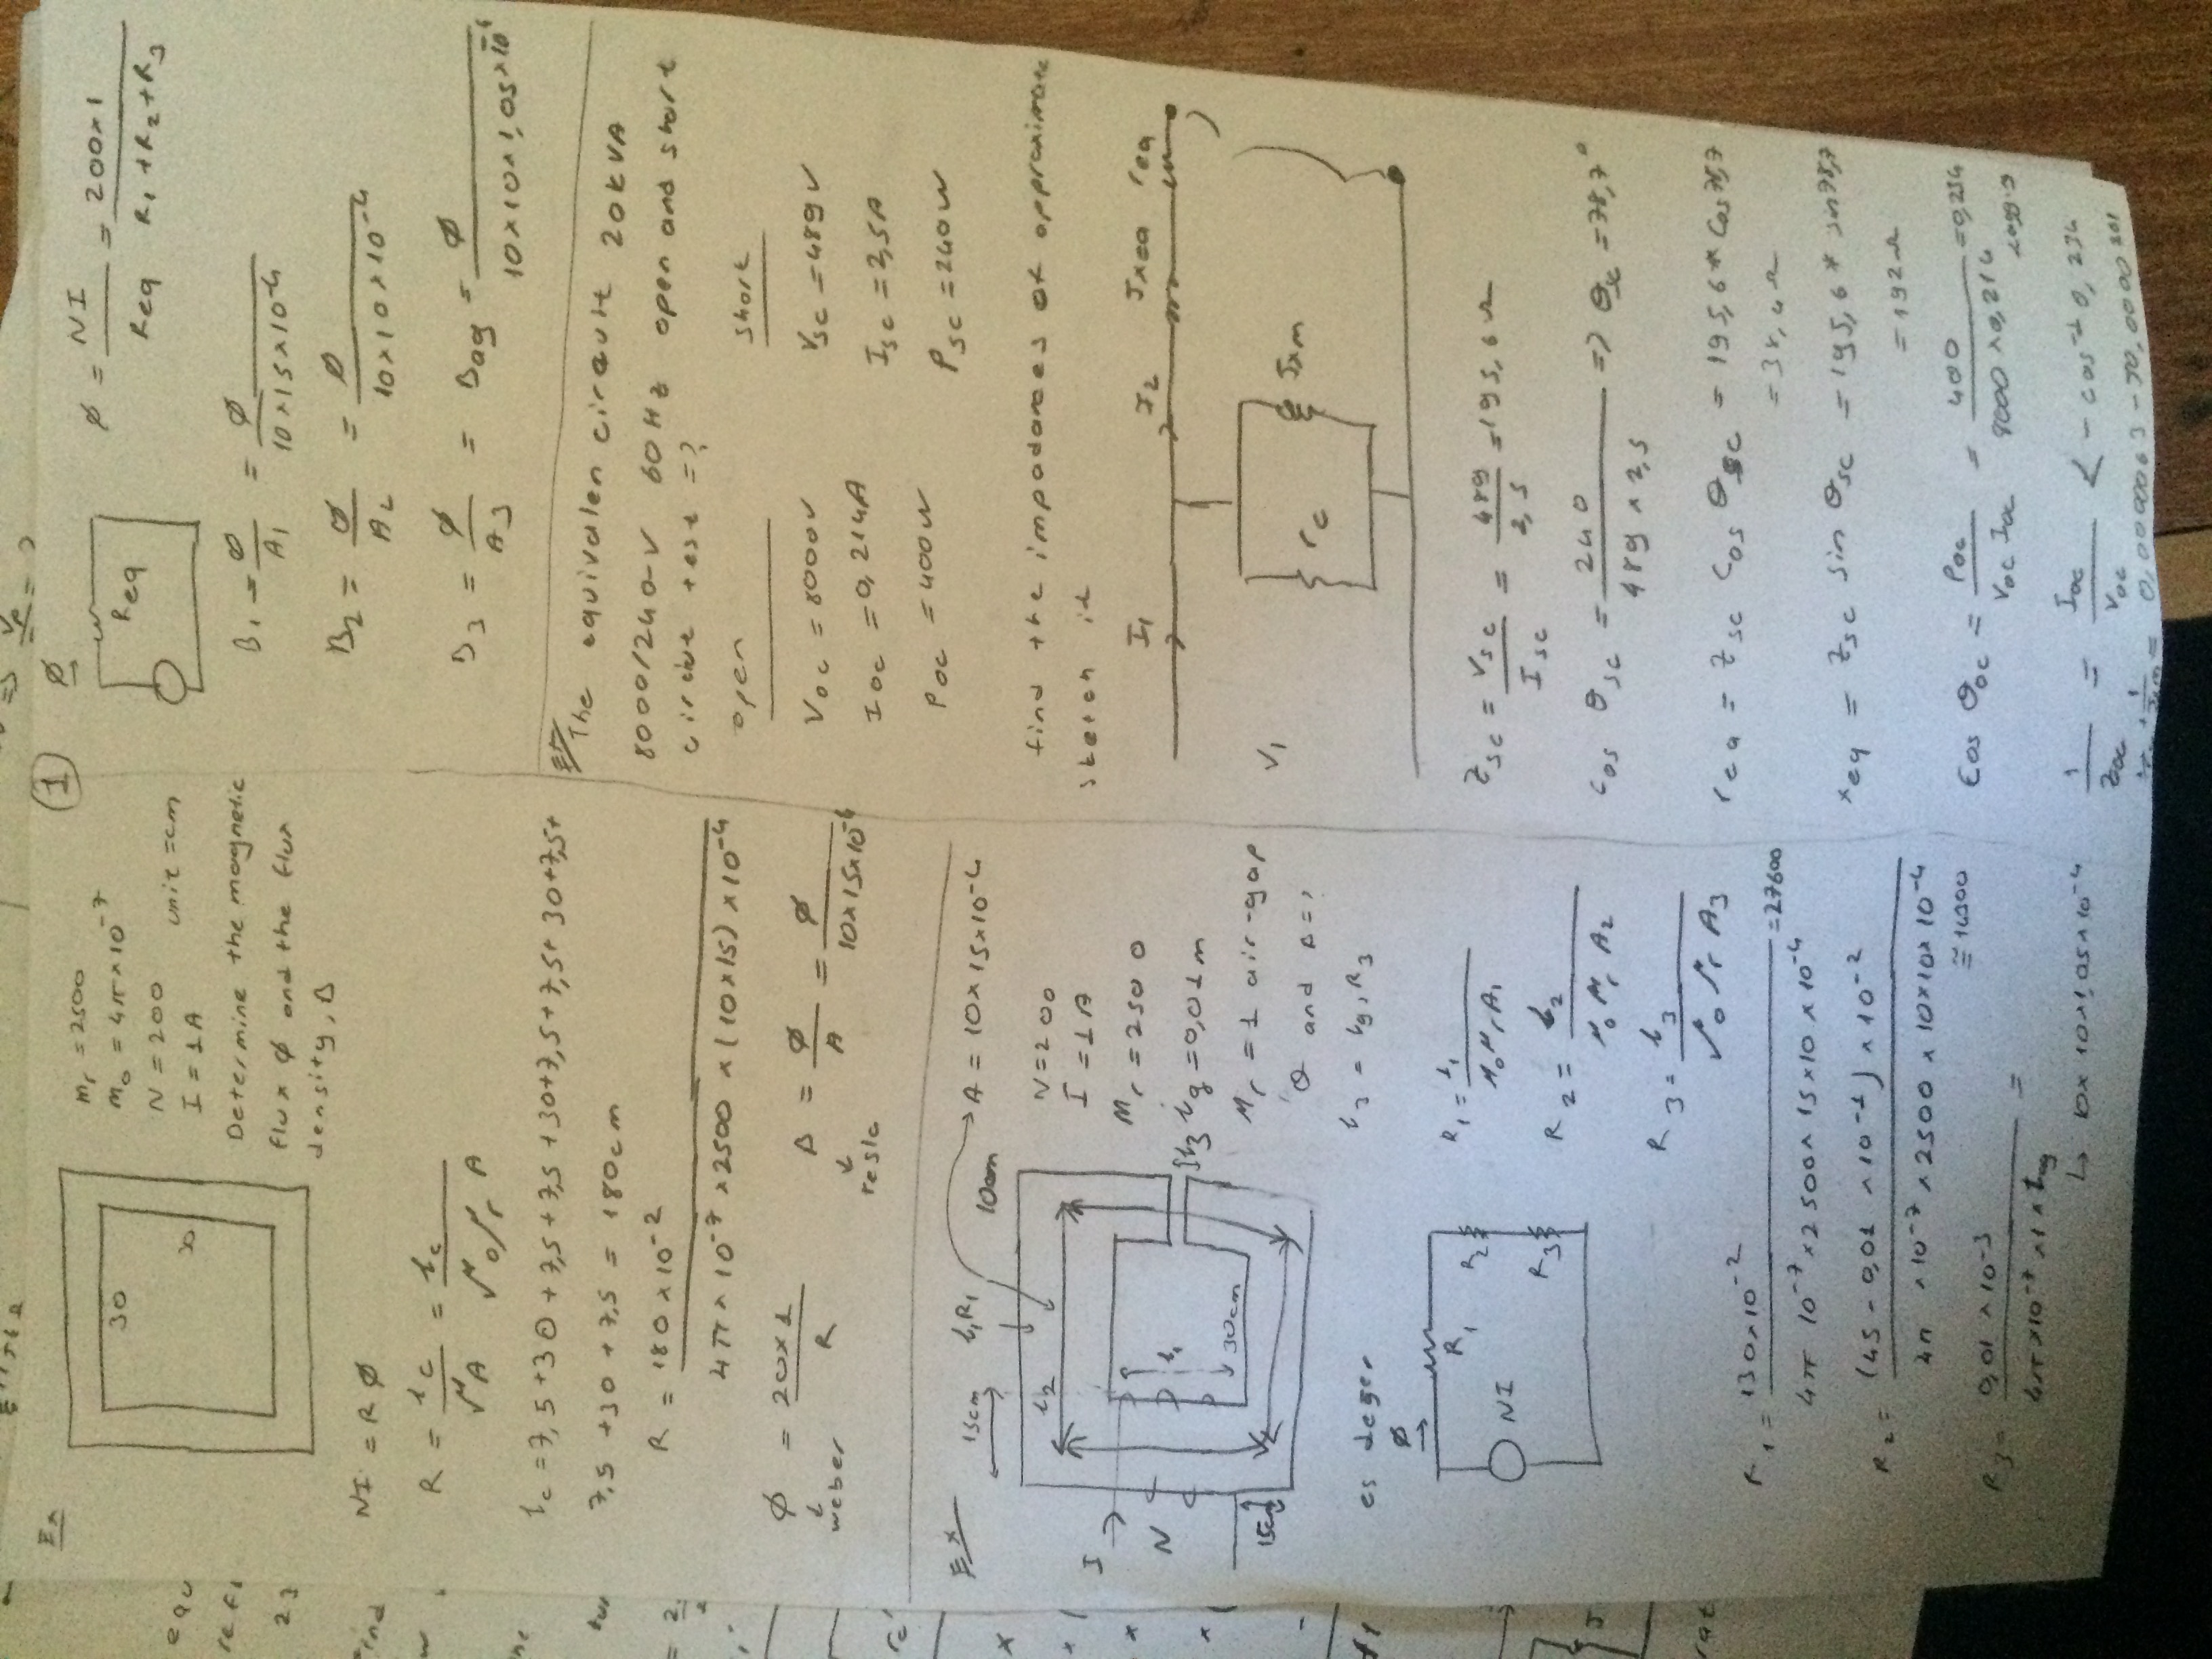 ①
Ex
30
x
Mr = 2500
M0 = 4π×10^-7
N = 200 unit = cm
I = 1A
Determine the magnetic
flux ϕ and the flux
density, B
NI = Rϕ
R = lc/μA = lc/μ0μr A
lc = 7,5+30+7,5+7,5+30+7,5+7,5+30+7,5+
7,5+30+7,5 = 180cm
R = 180×10^-2 / 4π×10^-7×2500×(10×15)×10^-4
ϕ = 20×1/R B = ϕ/A = ϕ/10×15×10^-4
weber tesla
Ex
15cm l1R1 10cm
A = 10×15×10^-4
I
N
15cm
l2
l1
30cm
l3
N = 200
I = 1A
Mr = 2500
lg = 0,01m
Mr = 1 air-gap
ϕ and B = ?
l3 = lg, R3
es deger
ϕ
NI
R1
R2
R3
R1 = l1/μ0μrA1
R2 = l2/μ0μrA2
R3 = l3/μ0μrA3
R1 = 130×10^-2 / 4π 10^-7×2500×15×10×10^-4 = 27600
R2 = (45-0,01×10^-1)×10^-2 / 4π×10^-7×2500×10×10×10^-4
R3 = 0,01×10^-3 / 4π×10^-7×1× =
↳ 10×10×1,05×10^-4
ϕ
Req
ϕ = NI/Req = 200×1/R1+R2+R3
B1 = ϕ/A1 = ϕ/10×15×10^-4
B2 = ϕ/A2 = ϕ/10×10×10^-4
B3 = ϕ/A3 = Bag = ϕ/10×10×1,05×10^-4
Ex The equivalen circault 20kVA
8000/240-V 60Hz open and short
circuit test = ?
open short
Voc = 8000V Vsc = 489V
Ioc = 0,214A Isc = 2,5A
Poc = 400W Psc = 240W
find the impadances of approximate
sketch it
I1 I2 Jxeq req
V1
rc
Jxm
Zsc = Vsc/Isc = 489/2,5 = 195,6Ω
Cos θsc = 240/489×2,5 => θsc = 78,7°
req = Zsc Cos θsc = 195,6*Cos78,7
= 38,4Ω
xeq = Zsc sin θsc = 195,6*sin78,7
= 192Ω
Cos θoc = Poc/Voc Ioc = 400/8000×0,214 = 0,234
1/Zoc = Ioc/Voc < -cos^-1 0,234